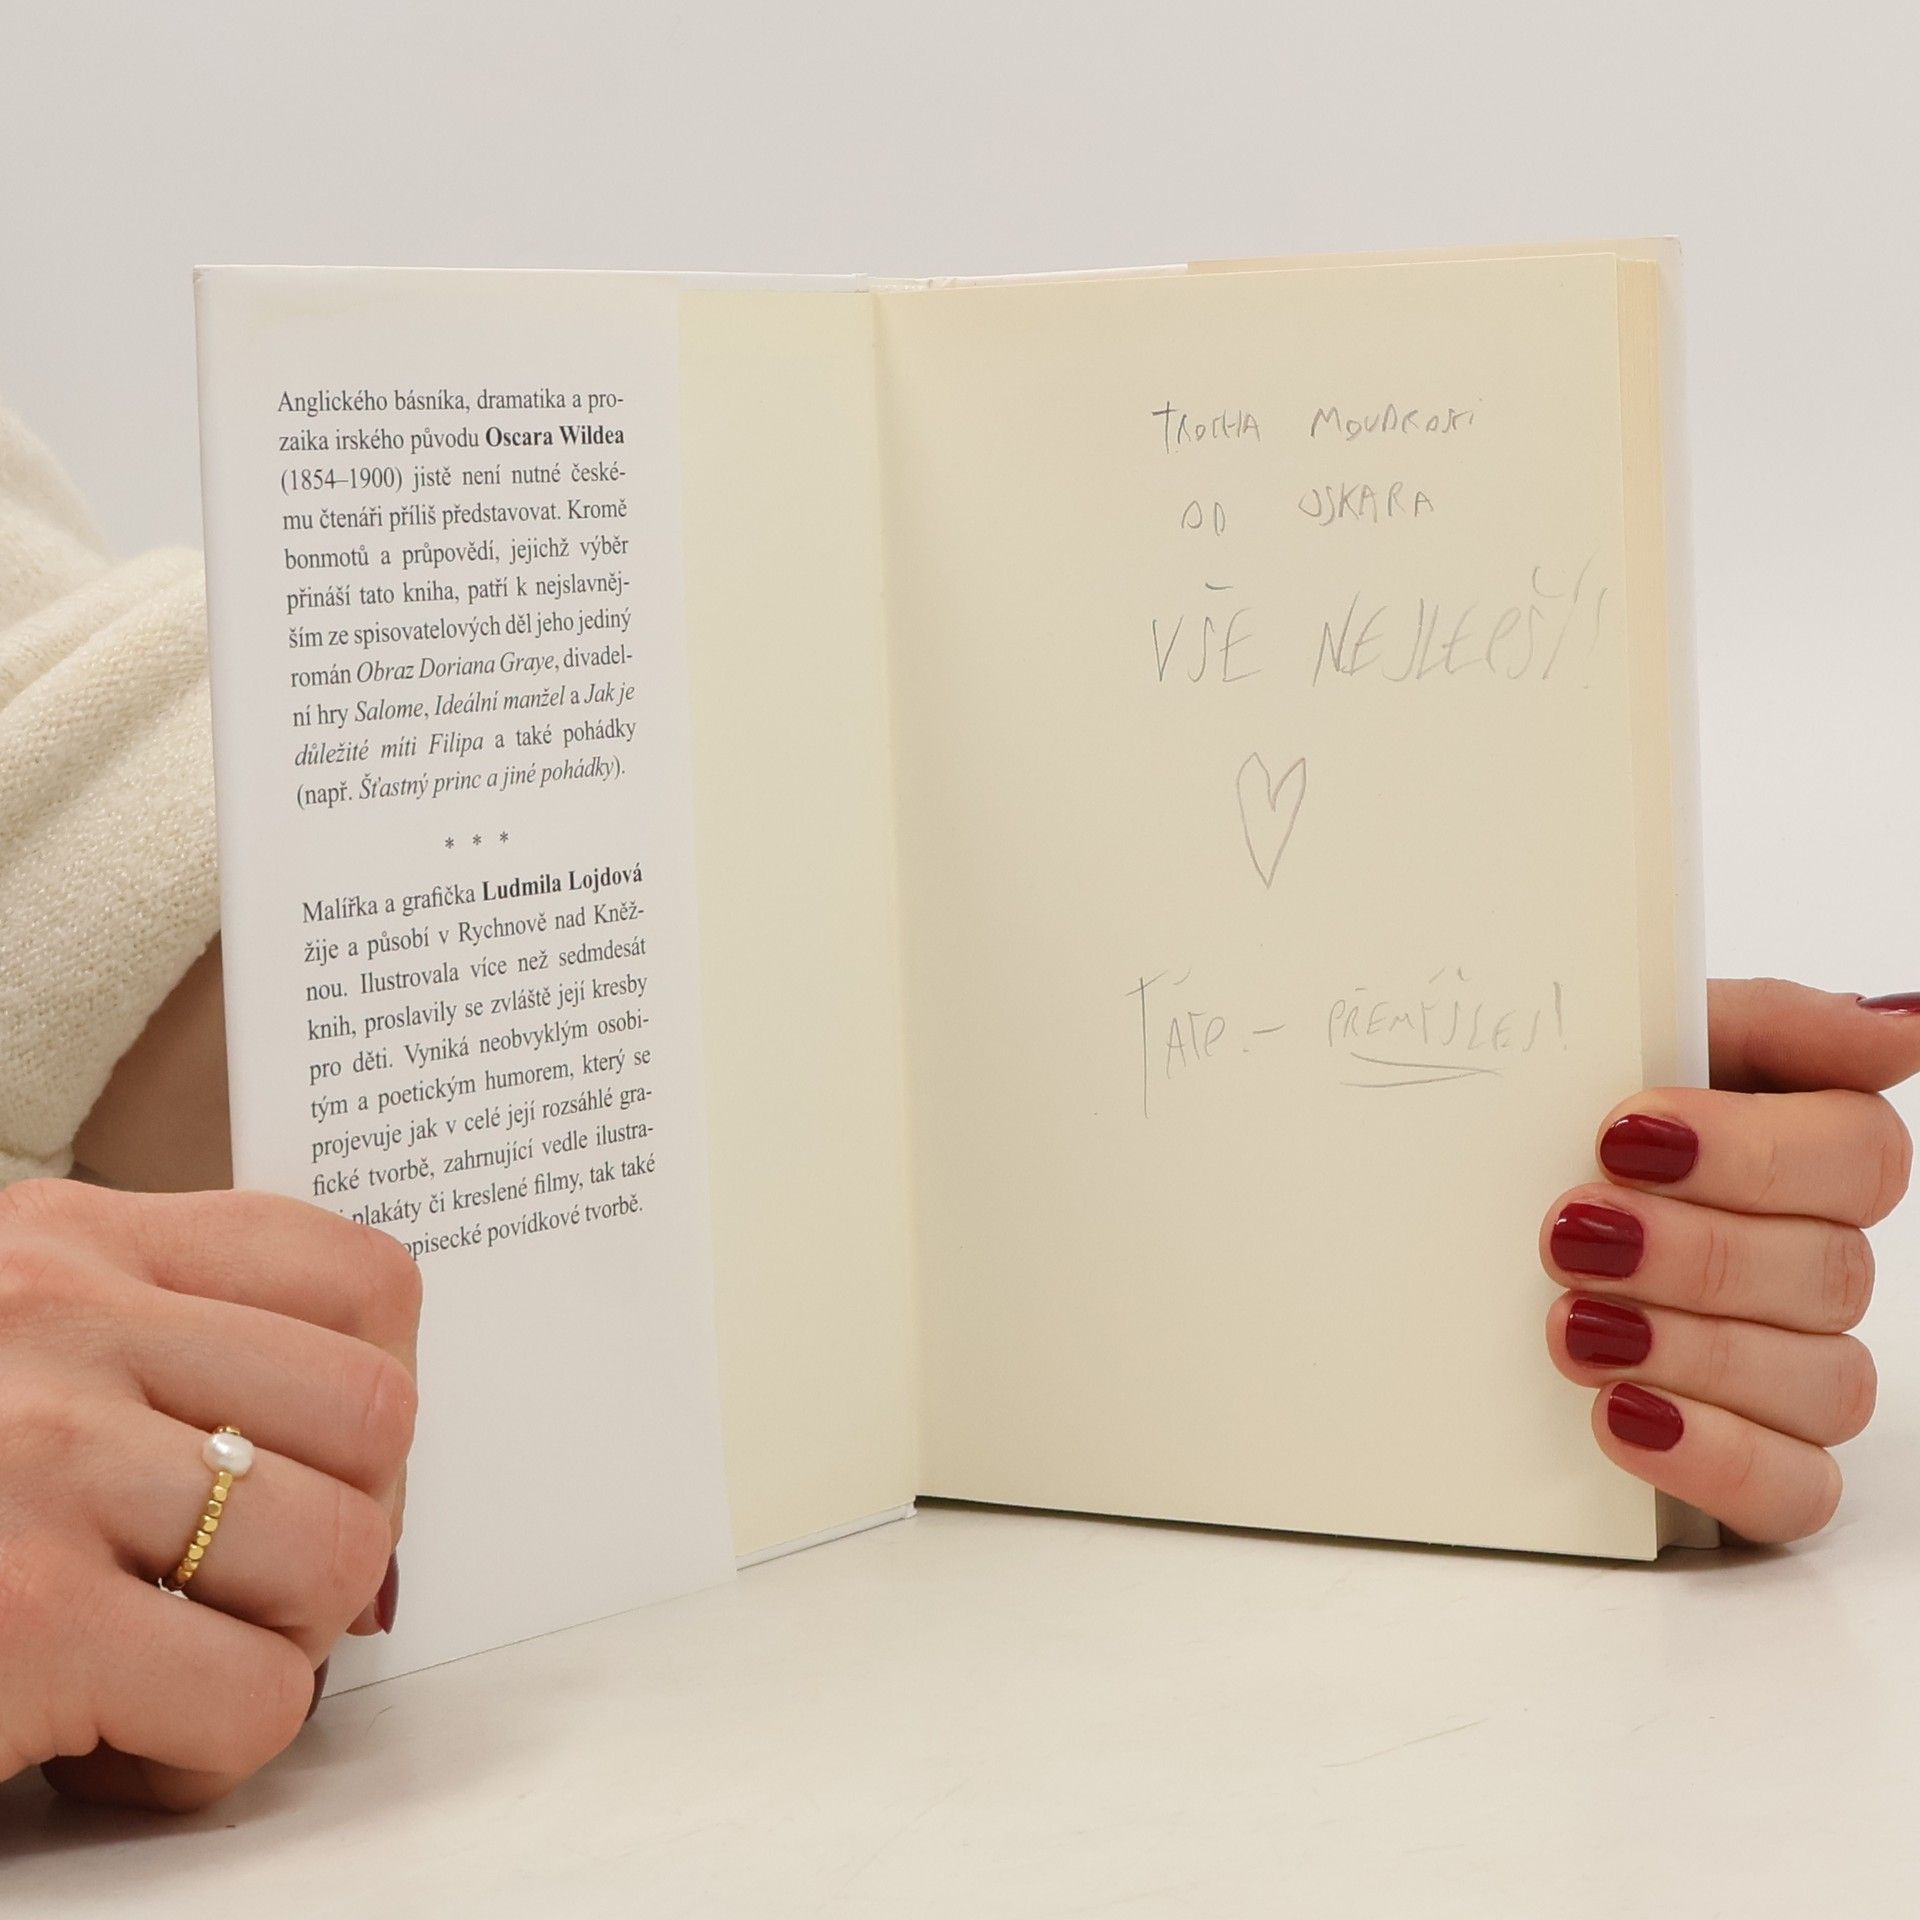 Anglického básníka, dramatika a pro-
zaika irského původu Oscara Wildea
(1854–1900) jistě není nutné české-
mu čtenáři příliš představovat. Kromě
bonmotů a průpovědí, jejichž výběr
přináší tato kniha, patří k nejslavněj-
ším ze spisovatelových děl jeho jediný
román Obraz Doriana Graye, divadel-
ní hry Salome, Ideální manžel a Jak je
důležité míti Filipa a také pohádky
(např. Šťastný princ a jiné pohádky).
* * *
Malířka a grafička Ludmila Lojdová
žije a působí v Rychnově nad Kněž-
nou. Ilustrovala více než sedmdesát
knih, proslavily se zvláště její kresby
pro děti. Vyniká neobvyklým osobi-
tým a poetickým humorem, který se
projevuje jak v celé její rozsáhlé gra-
fické tvorbě, zahrnující vedle ilustra-
plakáty či kreslené filmy, tak také
opisecké povídkové tvorbě.
TROCHA MOUDROSTI
OD OSKARA
VŠE NEJLEPŠÍ!
PŘEMÝŠLEJ!